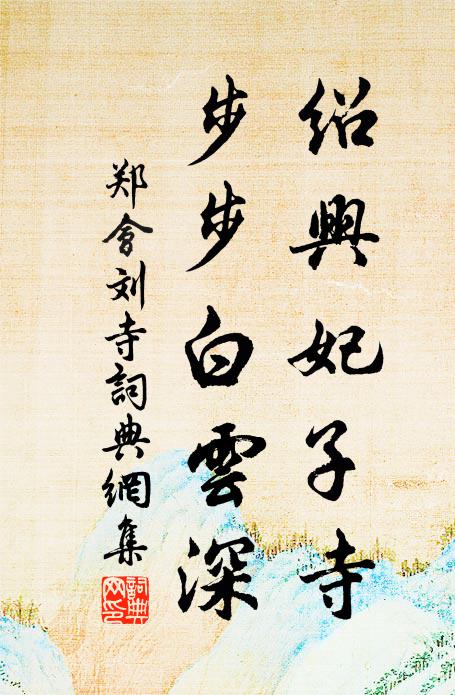 紹興妃子寺
步步白雲深
郑會刘寺詞典網集
詞典
网印